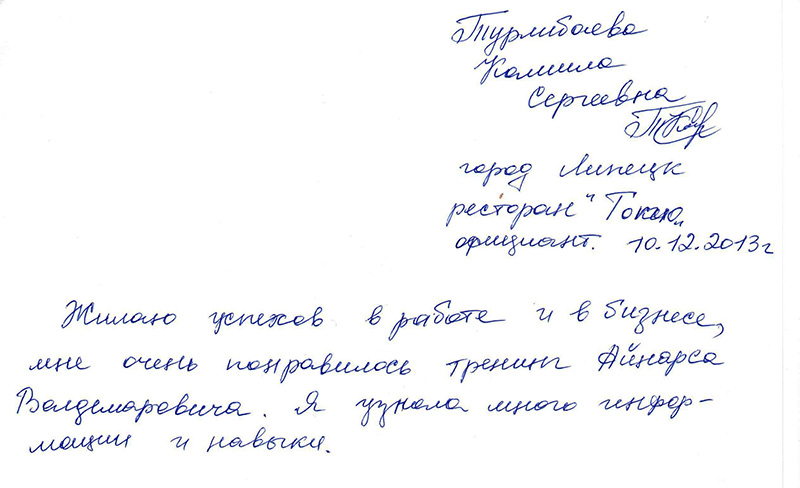 Турлибаева
Камила
Сергеевна
город Липецк
ресторан "Токио"
официант. 10.12.2013г
Жилаю успехов в работе и в бизнесе,
мне очень понравилось тренинг Айнарса
Валдемаровича. Я узнала много инфор-
мации и навыки.